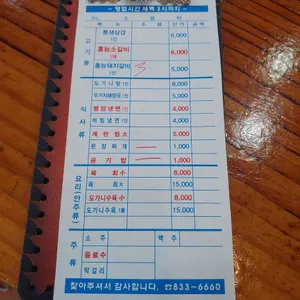 — 영업시간 새벽 3시까지 —
No.
소 을 막
단가 금액
고기류
통생삼겹 1인 6,000
홍능소갈비 1대 6,000
홍능돼지갈비 1인 3 5,000
식사류
도가니탕 1인 8,000
우거지해장국 1인 5,000
평양냉면 1인 4,000
비빔냉면 1인 4,000
계란찜大 5,000
된장찌개 1,000
공기밥 1,000
요리(안주류)
육회小 8,000
육회大 15,000
도가니수육小 8,000
도가니수육 15,000
주류
소주 맥주
음료수
막걸리
찾아주셔서 감사합니다. ☎833-6660